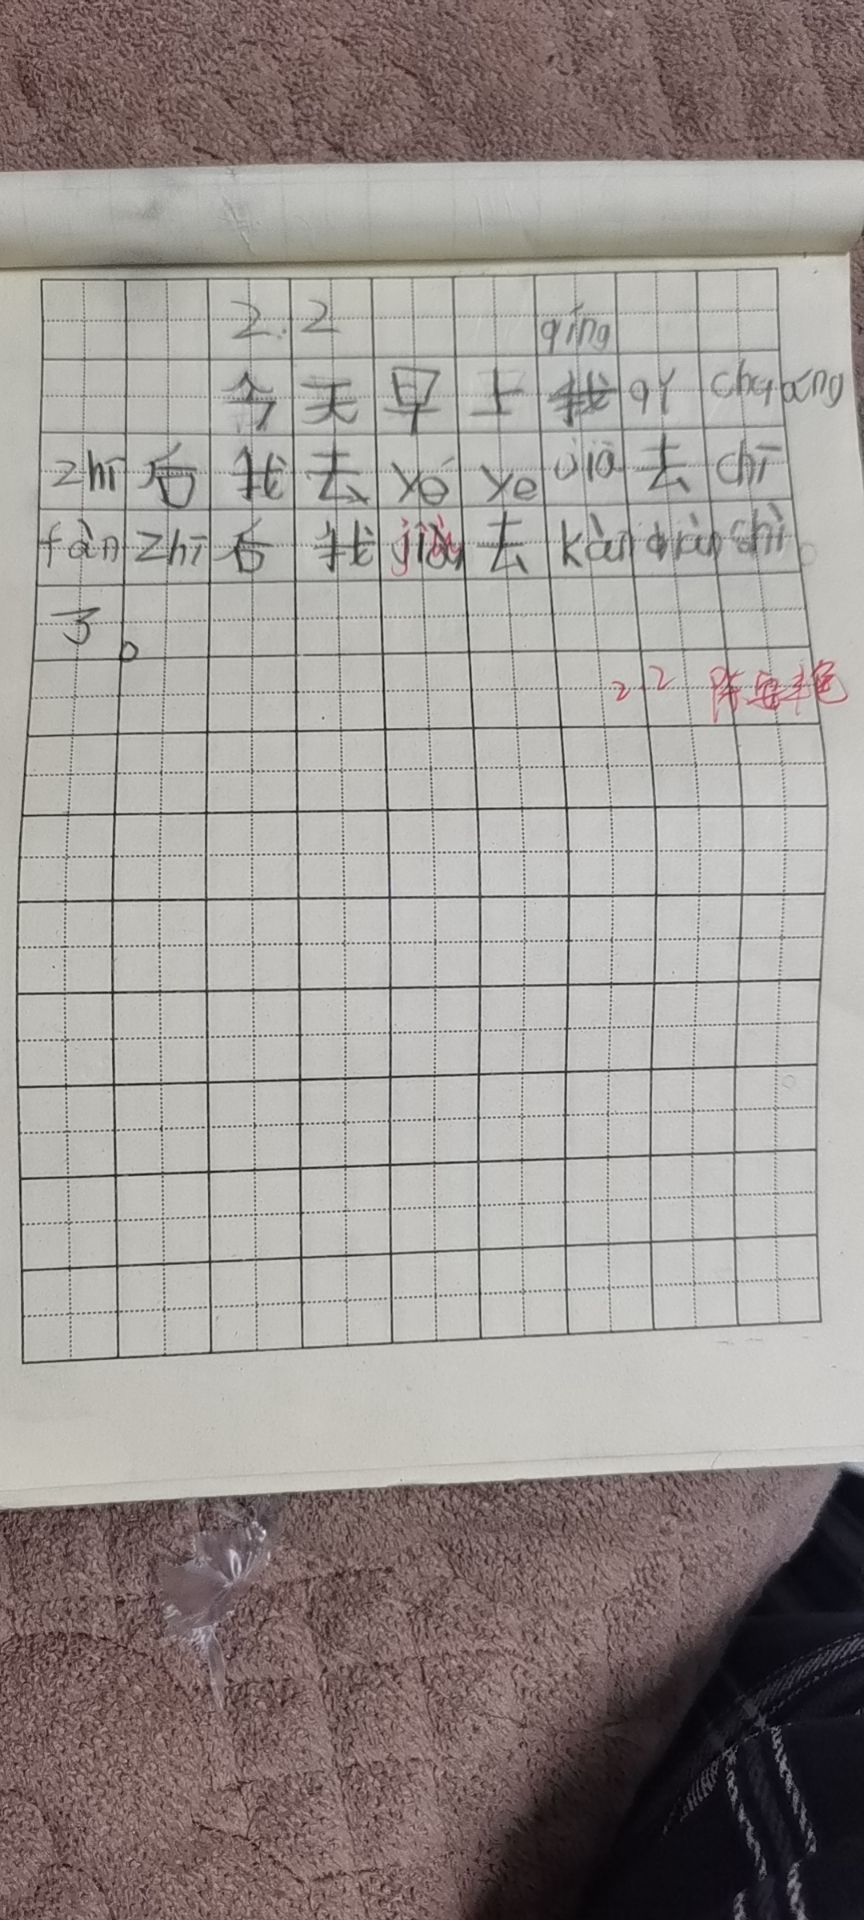 2.2 qíng
今天早上我qǐ chuáng
zhī后我去yé ye jiā去chī
fàn zhī后我jiù去kàn diàn shì。
了。
2.2